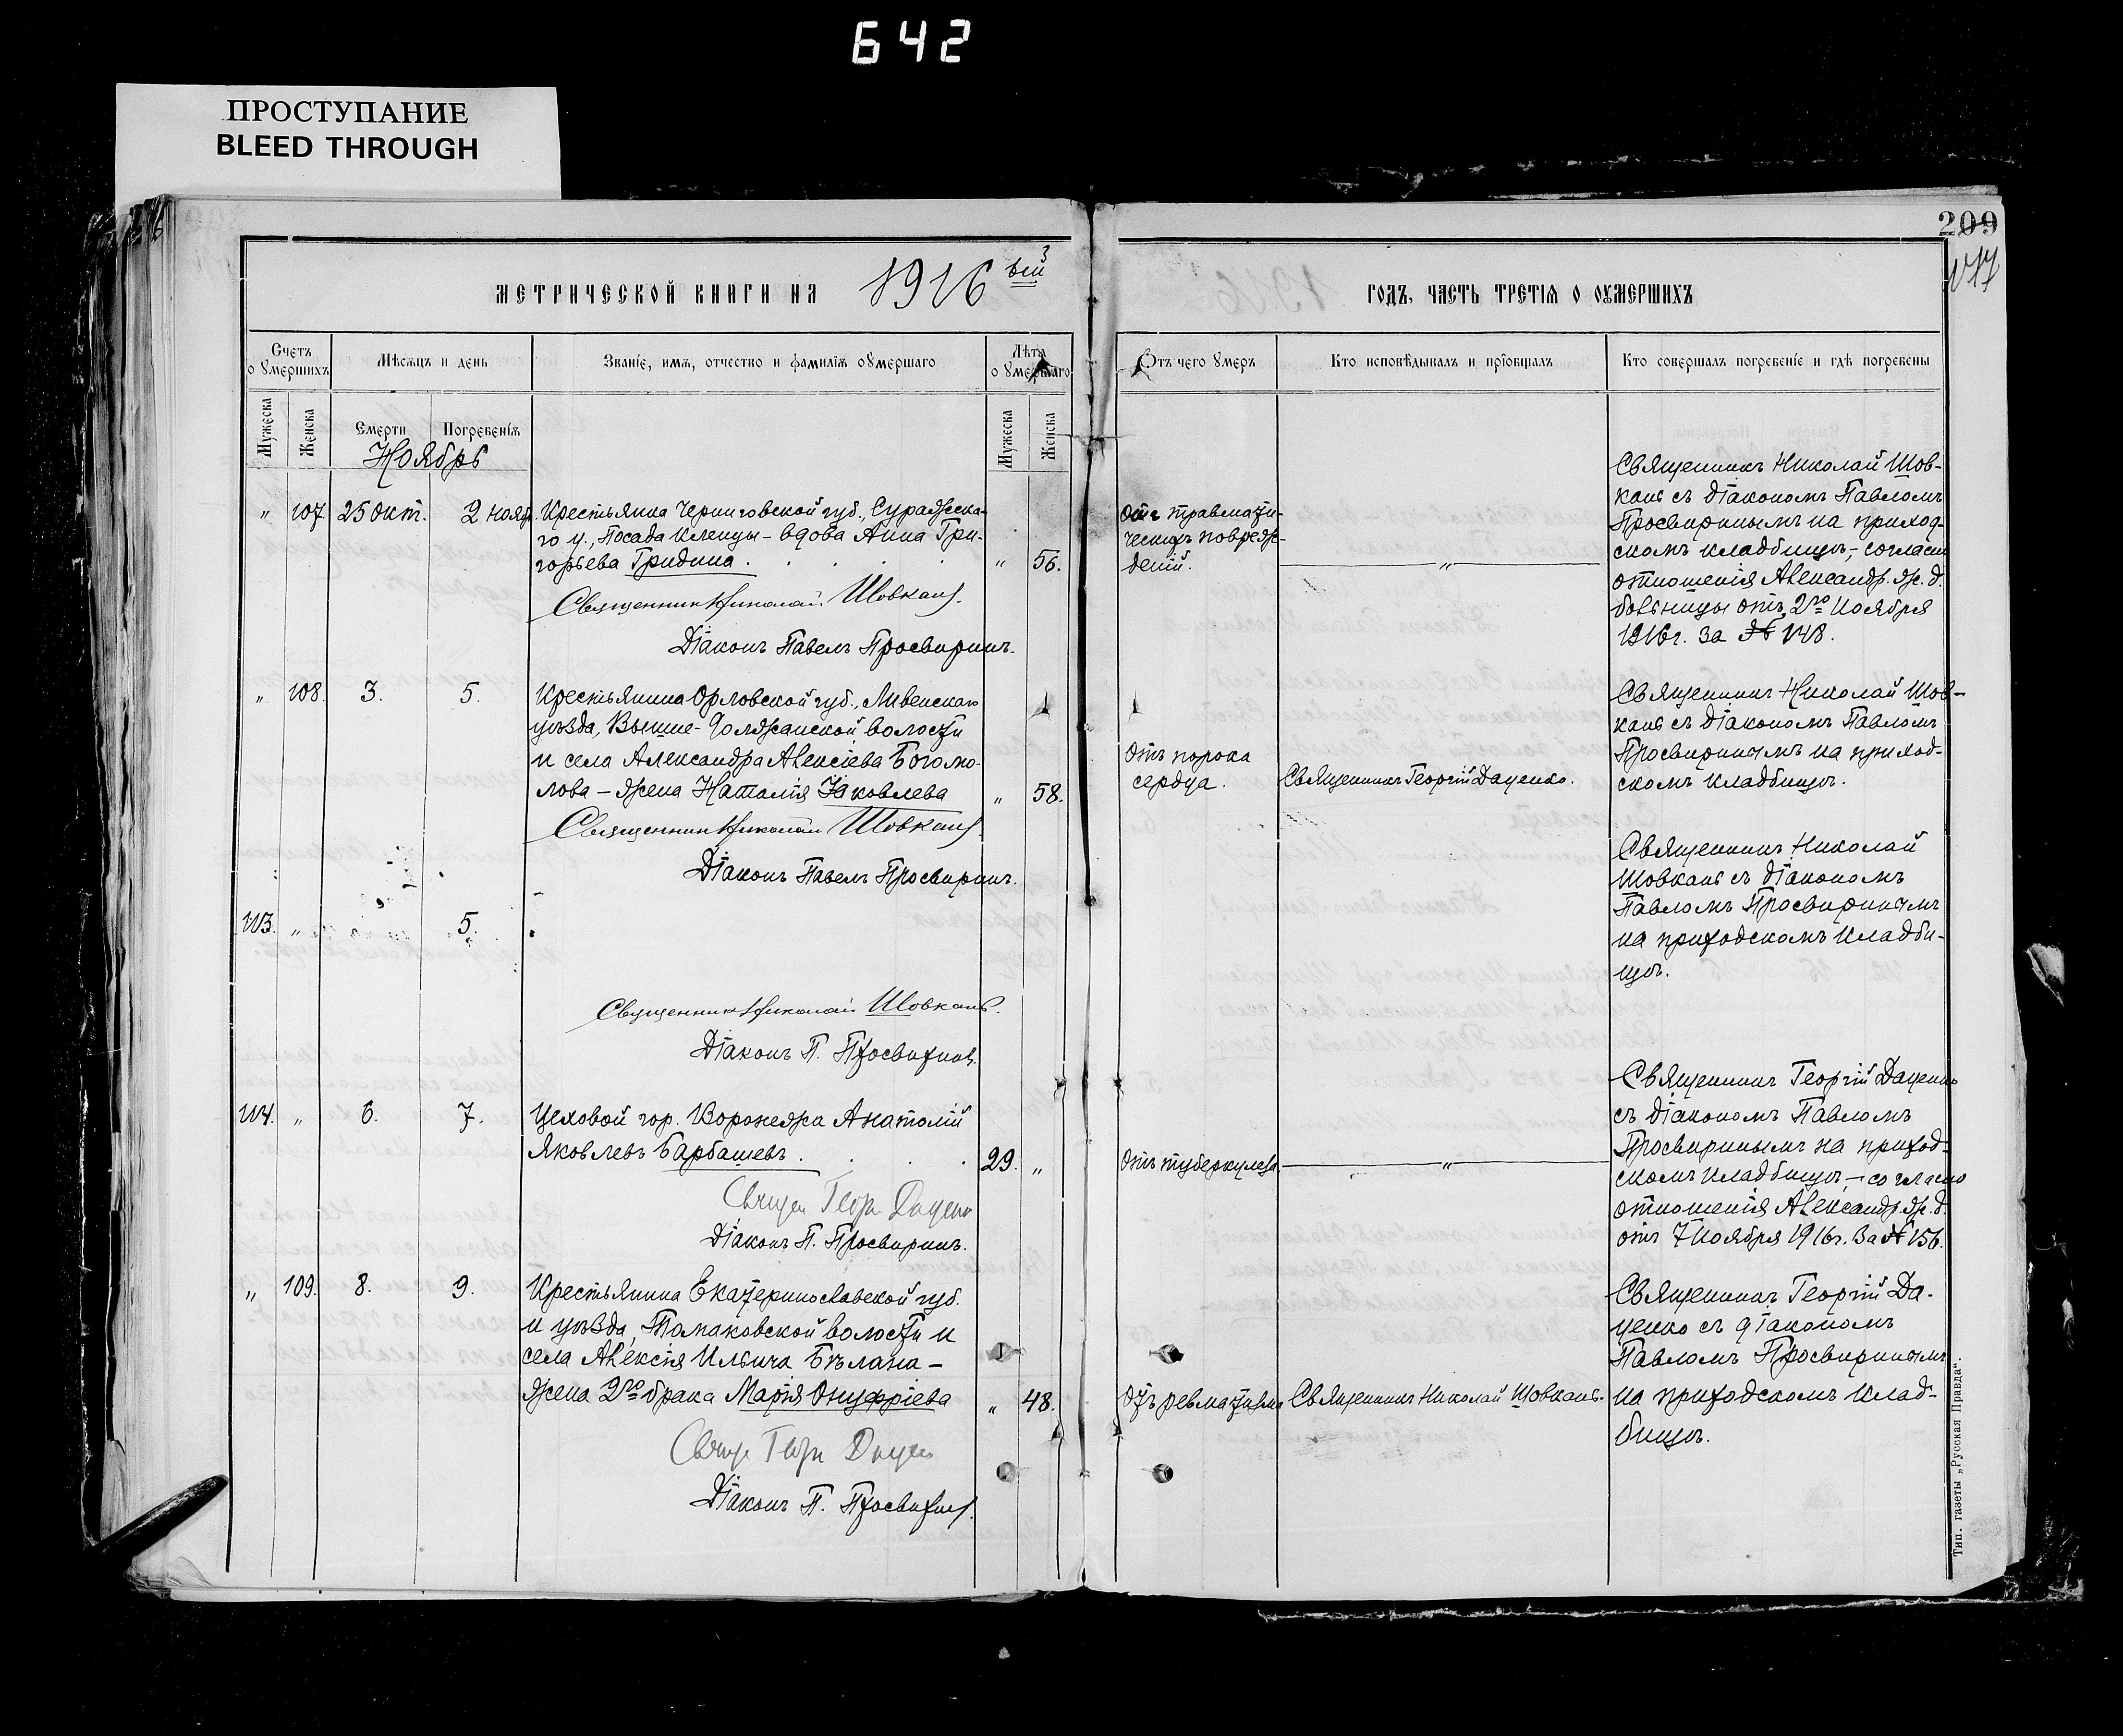 642
ПРОСТУПАНИЕ
BLEED THROUGH
209
МЕТРИЧЕСКОЙ КНИГИ НА 1916 ый
ГОДЪ, ЧАСТЬ ТРЕТІЯ О ОУМЕРШИХЪ
Счетъ о умершихъ
Мѣсяцъ и день
Званіе, имя, отчество и фамилія оумершаго
Лѣта о умершаго
Отъ чего умеръ
Кто исповѣдывалъ и пріобщалъ
Кто совершалъ погребеніе и гдѣ погребены
Мужеска
Женска
Смерти
Погребенія
Мужеска
Женска
Ноябрь
„ 107 25 Окт. 2 нояб.
Крестьянка Черниговской губ., Суражска-
го у., Посада Клинцы – вдова Анна Гри-
горьева Гридина
„ 56.
Священникъ Николай Шовкань.
Діаконъ Павелъ Просвиринъ.
Отъ травмати-
ческихъ повреж-
деній.
„
Священникъ Николай Шов-
кань съ діакономъ Павломъ
Просвиринымъ на приход-
скомъ кладбищѣ, – согласно
отношенія Александр. ж. д.
больницы отъ 2го Ноября
1916г. за № 148.
„ 108. 3. 5.
Крестьянина Орловской губ., Ливенскаго
уѣзда, Вышне-Должанской волости
и села Александра Алексіева Богомо-
лова – жена Наталія Іаковлева
„ 58.
Священникъ Николай Шовкань.
Діаконъ Павелъ Просвиринъ.
Отъ порока
сердца.
Священникъ Георгій Даценко.
Священникъ Николай Шов-
кань съ діакономъ Павломъ
Просвиринымъ на приход-
скомъ кладбищѣ.
113. „ 5.
Священникъ Николай Шовкань.
Діаконъ П. Просвиринъ.
Священникъ Николай
Шовкань съ діакономъ
Павломъ Просвиринымъ
на приходскомъ кладби-
щѣ.
114. „ 6. 7.
Цеховой гор. Воронежа Анатолій
Яковлевъ Барбашевъ
29. „
Свящ. Георг. Даценко
Діаконъ П. Просвиринъ.
Отъ туберкулеза
„
Священникъ Георгій Даценко
съ діакономъ Павломъ
Просвиринымъ на приход-
скомъ кладбищѣ, – согласно
отношенія Александр. ж. д.
отъ 7 Ноября 1916г. за № 156.
„ 109. 8. 9.
Крестьянина Екатеринославской губ.
и уѣзда, Томаковской волости и
села Алексія Ильича Бѣлана –
жена 2го брака Марія Онуфріева
„ 48.
Свящ. Георг. Даценко
Діаконъ П. Просвиринъ.
Отъ ревматизма
Священникъ Николай Шовкань.
Священникъ Георгій Да-
ценко съ діакономъ
Павломъ Просвиринымъ
на приходскомъ клад-
бищѣ.
Тип. газеты „Русская Правда“.